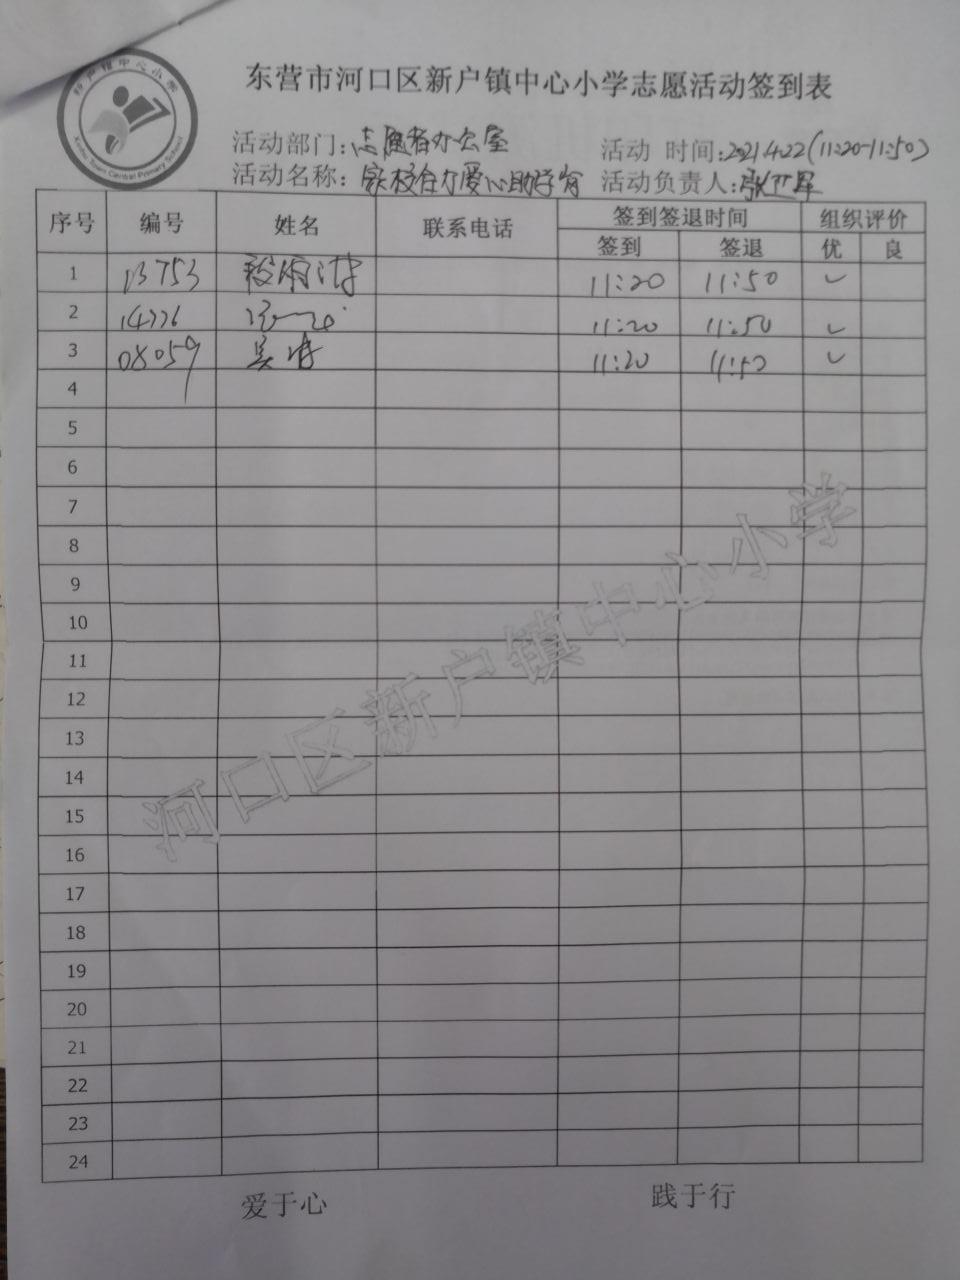 新户镇中心小学
Xinhu Town Central Primary School
东营市河口区新户镇中心小学志愿活动签到表
活动部门：志愿者办公室 活动 时间：2021.4.22（11:20-11:50）
活动名称：家校合力爱心助学育 活动负责人：
序号 编号 姓名 联系电话 签到签退时间 组织评价
签到 签退 优 良
1 13753 11:20 11:50 ✓
2 14776 11:20 11:50 ✓
3 08059 11:20 11:50 ✓
4
5
6
7
8
9
10
11
12
13
14
15
16
17
18
19
20
21
22
23
24
河口区新户镇中心小学
爱于心 践于行